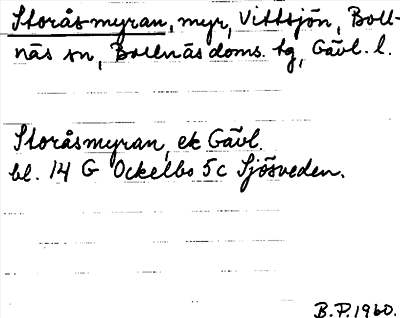 Storåsmyran, myr, Vittsjön, Boll-
näs sn, Bollnäs doms. tg, Gävl. l.
Storåsmyran, ek Gävl.
bl. 14 G Ockelbo 5c Sjösveden.
B.P. 1960.